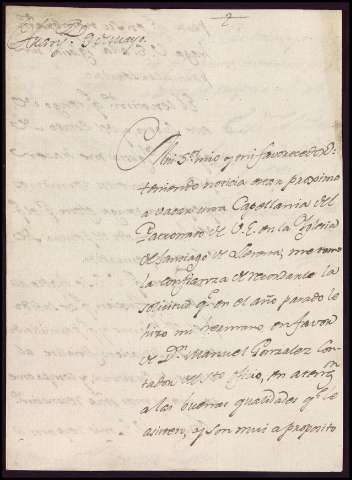 Mui Sr. mio y mi favorecedor:
teniendo noticia estar proximo
a vacar una Capellania del
Patronato de V.E. en la Yglesia
de Santiago de Llerena, me tomo
la confianza de recordarle la
solicitud qe. en el año pasado le
hizo mi hermano en favor
de Dn. Manuel Gonzalez Con-
tador de sto. Ofizio, en atenn.
a las buenas qualidades qe. le
asisten, y son mui a proposito